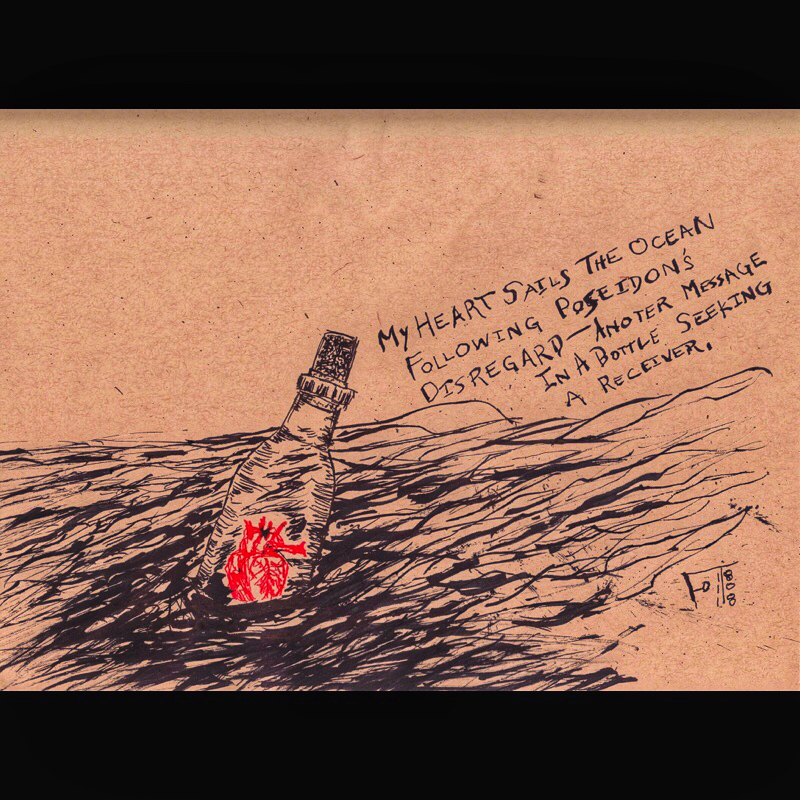 My HEART SAILS THE OCEAN
FOLLOWING POSEIDON'S
DISREGARD—ANOTER MESSAGE
IN A BOTTLE SEEKING
A RECEIVER.